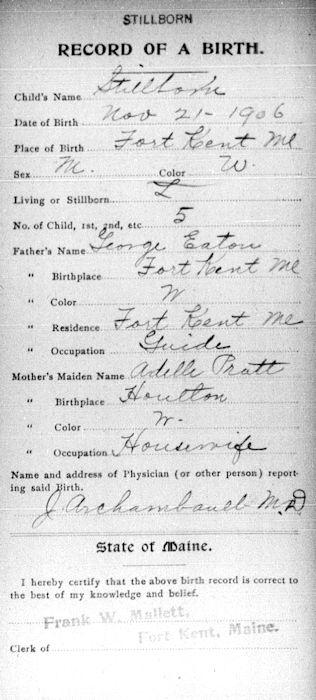 STILLBORN
RECORD OF A BIRTH.
Child's Name Stillborn
Date of Birth Nov 21-1906
Place of Birth Fort Kent Me
Sex M. Color W.
Living or Stillborn
No. of Child, 1st, 2nd, etc 5
Father's Name George Eaton
" Birthplace Fort Kent Me
" Color W
" Residence Fort Kent Me
" Occupation Guide
Mother's Maiden Name Adelle Pratt
" Birthplace Houlton
" Color W.
" Occupation Housewife
Name and address of Physician (or other person) report-
ing said Birth.
J. Archambault M.D
State of Maine.
I hereby certify that the above birth record is correct to
the best of my knowledge and belief.
Frank W. Mallett,
Fort Kent, Maine.
Clerk of